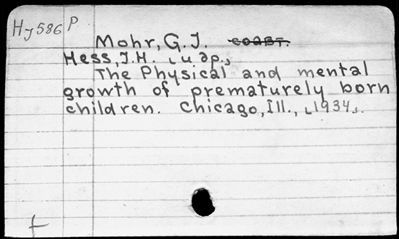 Hy586 P
Mohr, G. J. соавт.
Hess, J.H. ⌞и др.⌟
The Physical and mental
growth of prematurely born
children. Chicago, Ill., ⌞1934⌟.
t